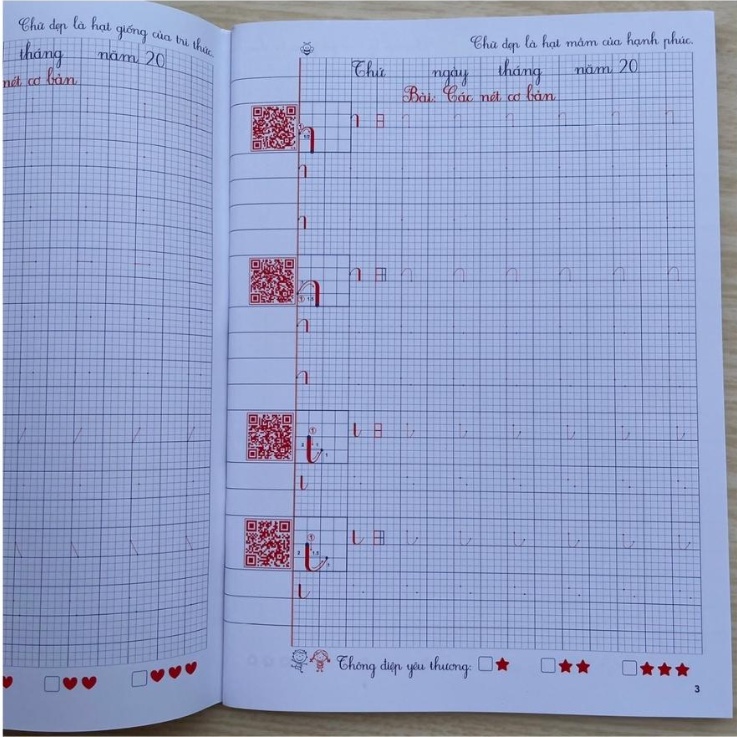 Chữ đẹp là hạt giống của tri thức.
tháng năm 20
nét cơ bản
Chữ đẹp là hạt mầm của hạnh phúc.
Thứ ngày tháng năm 20
Bài: Các nét cơ bản
Thông điệp yêu thương:
3